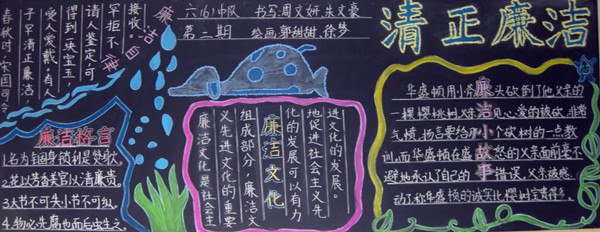 清正廉洁
六(6)中队 书写:周文妍 朱文豪
第二期 绘画:郭甜甜 徐梦
廉洁自律
春秋时,宋国司会
子罕清正廉洁,
受人爱戴。有人
得到一块宝玉,
请人鉴定可
罕拒不
接收。
廉洁格言
1.名为锢身锁,利是焚身火。
2.花以芳香美,官以清廉贵。
3.大节不可失,小节不可纵。
4.物必先腐也而后虫生之。
廉洁文化
廉洁文化是社会主
义先进文化的重要
组成部分,廉洁文
化的发展可以有力
地促进社会主义先
进文化的发展。
廉洁小故事
华盛顿用小斧头砍倒了他父亲的
一棵樱桃树。父亲见心爱的树被砍,非常
气愤,扬言要给那个砍树的一点教
训。而华盛顿在盛怒的父亲面前毫不
避地承认了自己的错误。父亲被感
动了,称华盛顿的诚实比樱树宝贵得多。